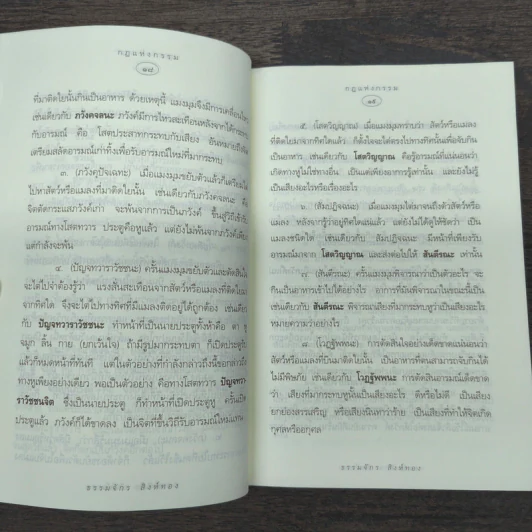 กฎแห่งกรรม
๑๘
ที่มาติดใยนั้นกินเป็นอาหาร ด้วยเหตุนี้ แมงมุมจึงมีการเคลื่อนไหว
เช่นเดียวกับ ภวังคจลนะ ภวังค์มีการไหวสะเทือนหลังจากได้กระทบ
กับอารมณ์ คือ โสตประสาทกระทบกับเสียง อันหมายถึง
เตรียมสลัดอารมณ์เก่าทิ้งเพื่อรับอารมณ์ใหม่ที่มากระทบ
๓. (ภวังคุปัจเฉทะ) เมื่อแมงมุมขยับตัวแล้วก็เตรียม
ไปหาสัตว์หรือแมลงที่มาติดใยนั้น เช่นเดียวกับภวังคจลนะ คือ
จิตตัดกระแสภวังค์เก่า จะพ้นจากการเป็นภวังค์ ขึ้นสู่วิถีเข้ารับ
อารมณ์ทางโสตทวาร ประตูคือหูแล้ว แต่ยังไม่พ้นจากภวังค์เดิม
แต่กำลังจะพ้น
๔. (ปัญจทวาราวัชชนะ) ครั้นแมงมุมขยับตัวและตัดสินใจ
จะไต่ไปจำต้องรู้ว่า แรงสั่นสะเทือนจากสัตว์หรือแมลงที่ติดใย
จากทิศใด จึงจะไต่ไปทางทิศที่มีแมลงติดอยู่ได้ถูกต้อง เช่นเดียว
กับ ปัญจทวาราวัชชนะ ทำหน้าที่เป็นนายประตูทั้งห้าคือ ตา หู
จมูก ลิ้น กาย (ยกเว้นใจ) ถ้ามีรูปมากระทบ ตา ก็เปิดประตู
แล้วก็หมดหน้าที่ทันที แต่ในตัวอย่างที่กำลังกล่าวถึงนี้ขอกล่าวถึง
ทางหูเพียงอย่างเดียว พอเป็นตัวอย่าง คือทางโสตทวาร ปัญจทวา
ราวัชชนจิต ซึ่งเป็นนายประตู ก็ทำหน้าที่เปิดประตูหู ครั้นเปิด
ประตูแล้ว ภวังค์ก็ได้ขาดลง เป็นจิตที่ขึ้นวิถีรับอารมณ์ใหม่แทน
ธรรมจักร สิงห์ทอง
กฎแห่งกรรม
๑๙
๕. (โสตวิญญาณ) เมื่อแมงมุมทราบว่า สัตว์หรือแมลง
ที่ติดใยมาจากทิศใดแล้ว ก็ตั้งใจจะไต่ตรงไปทางทิศนั้นเพื่อจับกิน
เป็นอาหาร เช่นเดียวกับ โสตวิญญาณ คือรู้อารมณ์ที่แน่นอนว่า
เกิดทางหูไม่ใช่ทางอื่น เป็นแต่เพียงอาการรู้เท่านั้น และยังไม่รู้
เป็นเสียงอะไรหรือเรื่องอะไร
๖. (สัมปฏิจฉนะ) เมื่อแมงมุมไต่มาจนถึงตัวสัตว์หรือ
แมลง หลังจากรู้ว่าอยู่ทิศใดแน่แล้ว แต่ยังไม่ได้ดูให้ชัดว่า เป็น
แมลงชนิดใด เช่นเดียวกับ สัมปฏิจฉนะ มีหน้าที่เพียงรับ
อารมณ์มาจาก โสตวิญญาณ และส่งต่อไปให้ สันตีรณะ เท่านั้น
๗. (สันตีรณะ) ครั้นแมงมุมพิจารณาว่าเป็นตัวอะไร จะ
กินเป็นอาหารเข้าไปได้อย่างไร อาการที่มันพิจารณาในขณะนี้เป็น
เช่นเดียวกับ สันตีรณะ พิจารณาเสียงที่มากระทบหูว่าเป็นเสียงอะไร
หมายความว่าอย่างไร
๘. (โวฏฐัพพนะ) การตัดสินใจอย่างเด็ดขาดแน่นอนว่า
สัตว์หรือแมลงที่บินมาติดใยนั้น เป็นอาหารที่ตนสามารถจะจับกินได้
ไม่มีพิษภัย เช่นเดียวกับ โวฏฐัพพนะ การตัดสินอารมณ์เด็ดขาด
ว่า เสียงที่มากระทบหูนั้นเป็นเสียงอะไร ดีหรือไม่ดี เป็นเสียง
ยกย่องสรรเสริญ หรือเสียงนินทาว่าร้าย เป็นเสียงที่ทำให้จิตเกิด
กุศลหรืออกุศล
ธรรมจักร สิงห์ทอง